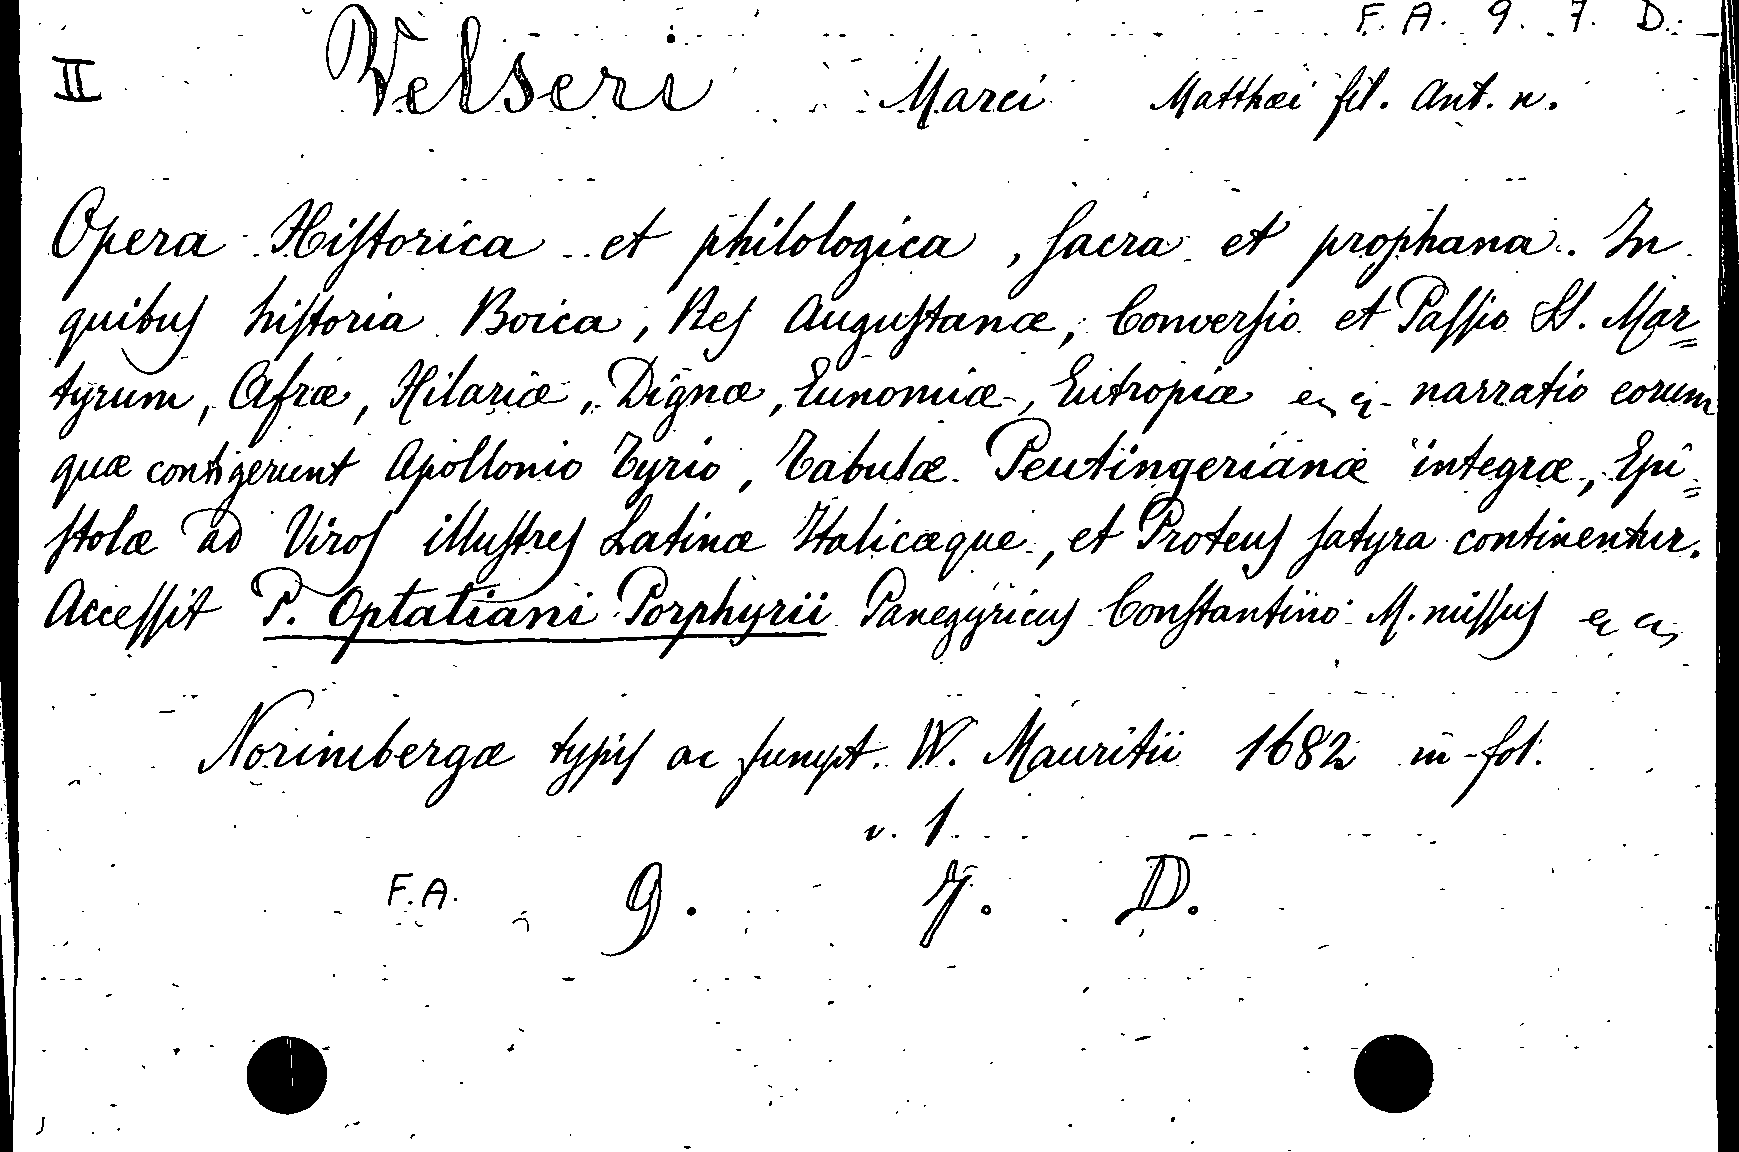 F. A. 9. 7. D.
II Velseri Marci Matthæi fil. Ant. n.
Opera Hiſtorica et philologica, ſacra et prophana. In
quibus hiſtoria Boica, Res Auguſtanæ, Converſio et Paſſio SS. Mar=
tyrum, Afræ, Hilariæ, Dignæ, Eunomiæ, Eutropiæ narratio eorum
quæ contigerunt Apollonio Tyrio, Tabulæ Peutingerianæ integræ, Epi=
ſtolæ ad Viros illuſtres Latinæ Italicæque, et Proteus ſatyra continentur.
Acceſſit P. Optatiani Porphyrii Panegyricus Conſtantino M. miſſus
Norimbergæ typis ac ſumpt. W. Mauritii 1682 in-fol.
v. 1.
F.A. 9. 7. D.